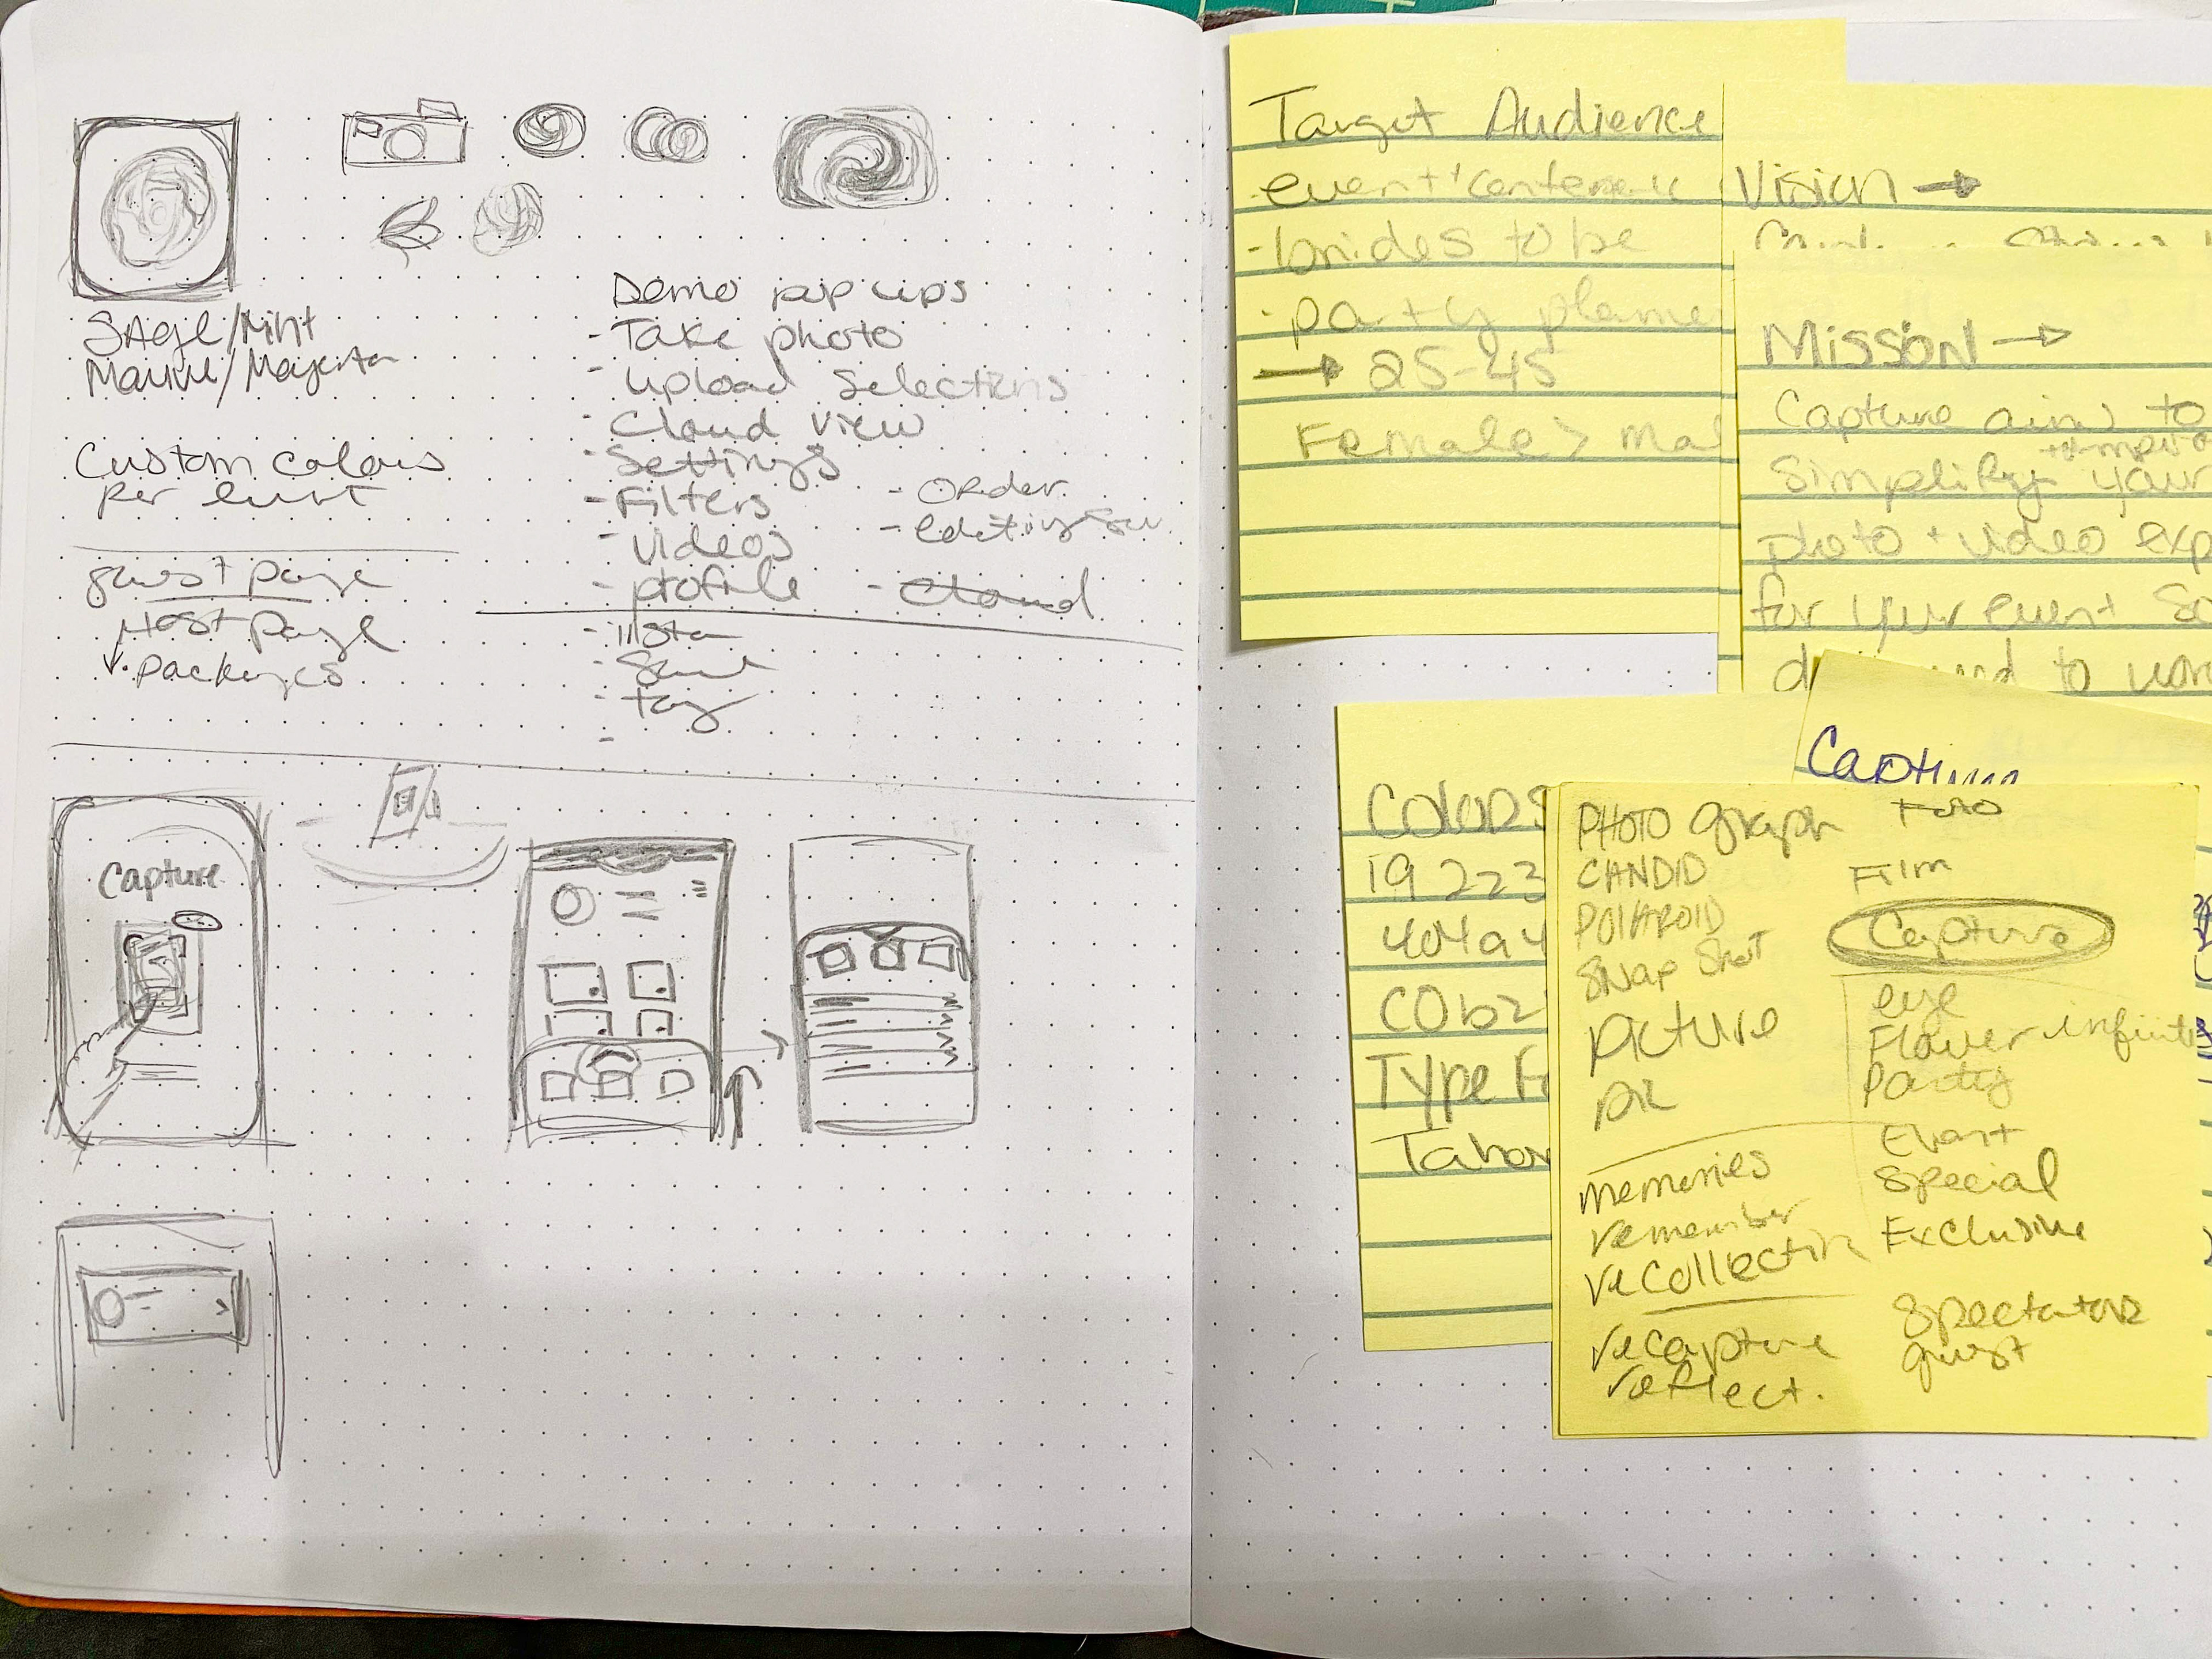 SAge/Mint
Mauve/Magenta
Custom colours
per event
guest page
Host page
packages
Demo pop ups
- Take photo
- upload selections
- Cloud View
- Settings
- Filters
- Order
- Videos
- editing
- profile
- Cloud
- insta
- Save
- tag
-
Capture
Target Audience
event + conference
- brides to be
- party planne
→ 25-45
Female > mal
Vision →
Mission →
Capture aims to
Simplify your
photo + video exp
for your event
to
Colors
19 223
404a4
C0b2
Type Fo
Taho
Capture
PHOTO graph
CANDID
POLAROID
Snap Shot
Picture
pic
memories
remember
recollection
recapture
reflect.
Foto
Film
Capture
eye
Flower infinit
Party
Event
Special
Exclusive
Spectator
guest